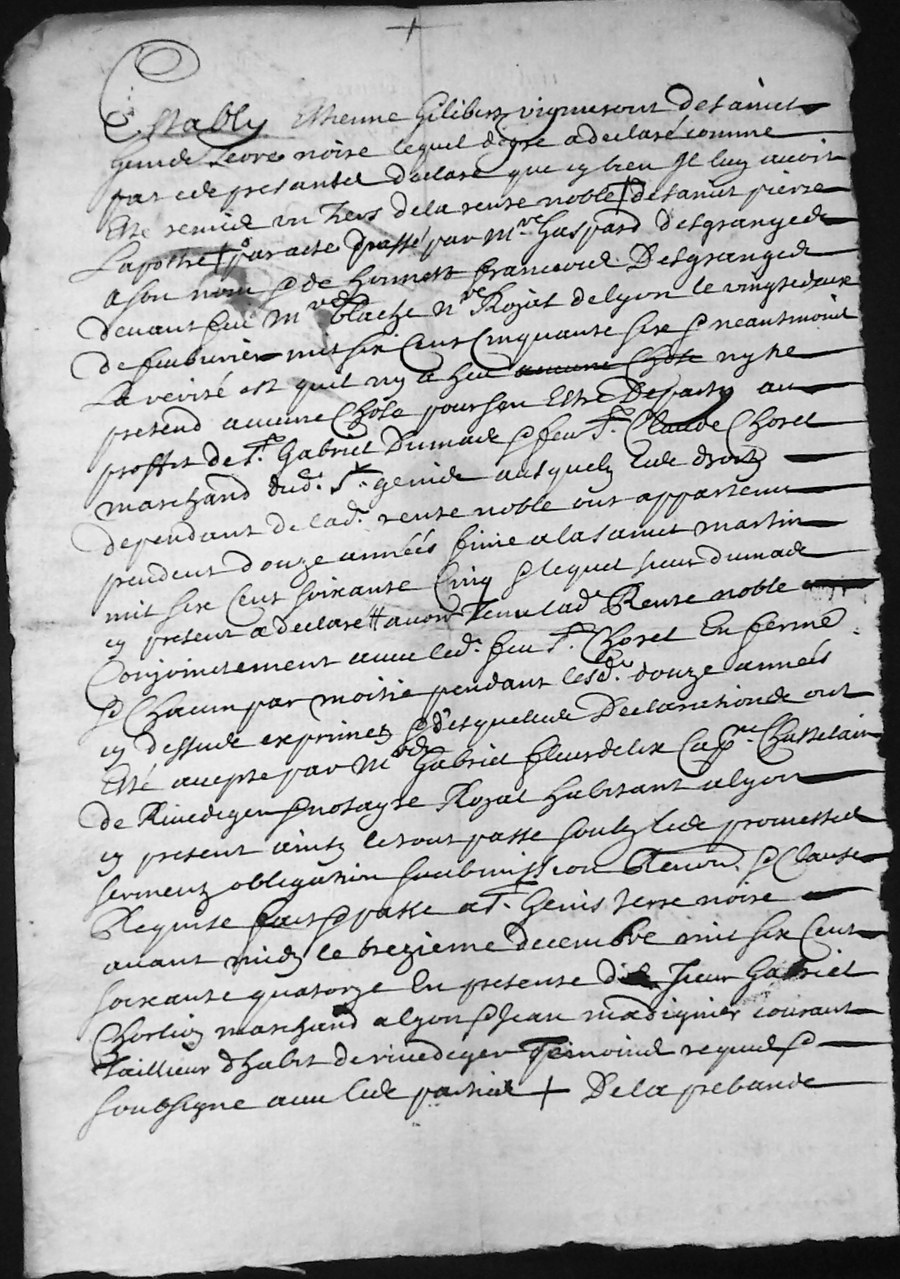 Estably Estienne Gilibert vigneront de sainct
Genide terre noire lequel de gre a declaré comme
par cde presantes declare que cy bien Il luy avoit
esté remide un tiers de la rente noble + de sainct pierre
Lapothre + par acte passé par Mre Gaspard Desgrangede
a son nom & de honneste francoise Desgrangede
devant feu Mre blache nre Royal de lyon le vingtdeux
de feuburier mil six Cent Cinquante six & neantmoins
La verité est quil ny a heu aucune Chose ny ne
pretend aucune Chose pour sen Estre Departy au
proffit de Sr. Gabriel Dumade & feu Sr. Claude Thoret
marchand dud. St. genide ausquelz lede droitz
dependant de lad. rente noble ont appartenu
pendent douze années finie a la sainct martin
mil six Cent soixante Cinq & lequel sieur dumade
cy present a declare avoir tenu lad. Rente noble
Conjoinctement avec led. feu Sr. Thoret En ferme
& Chacun par moitie pendant lesd. douze années
cy dessude exprimez & desquelede Declarationde ont
Esté accepte par Me Gabriel fleurdelix Capne. Chastelain
de Rivedegier & notayre Royal habitant a lyon
cy present ainsy le tout passe soubz lede promesses
serment obligation soubmission Renon. & Clause
Requise fait & passe a St. Genis terre noire
avant midy le trezieme decembre mil six Cent
soixante quatorze En presence de Sieur Gabriel
marchand a lyon & Jean madignier courant
tailleur dhabit de rivedegier temoinde requis &
soubsigne avec lede partiede + De la prebande